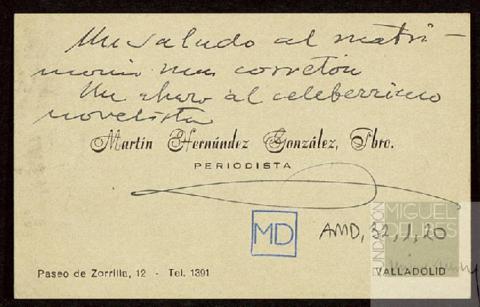 Un saludo al matri-
monio mas corretón
Un abrazo al celeberrimo
novelista
Martín Hernández González, Pbro.
PERIODISTA
MD
AMD, 32, 1, 20
FUNDACIÓN
MIGUEL
DELIBES
Paseo de Zorrilla, 12 - Tel. 1391
VALLADOLID